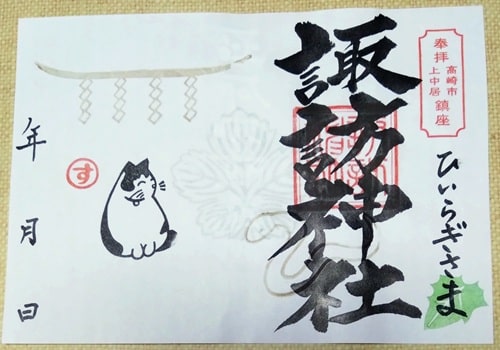 奉拝
高崎市
上中居
鎮座
ひいらぎさま
諏訪神社
す
年 月 日